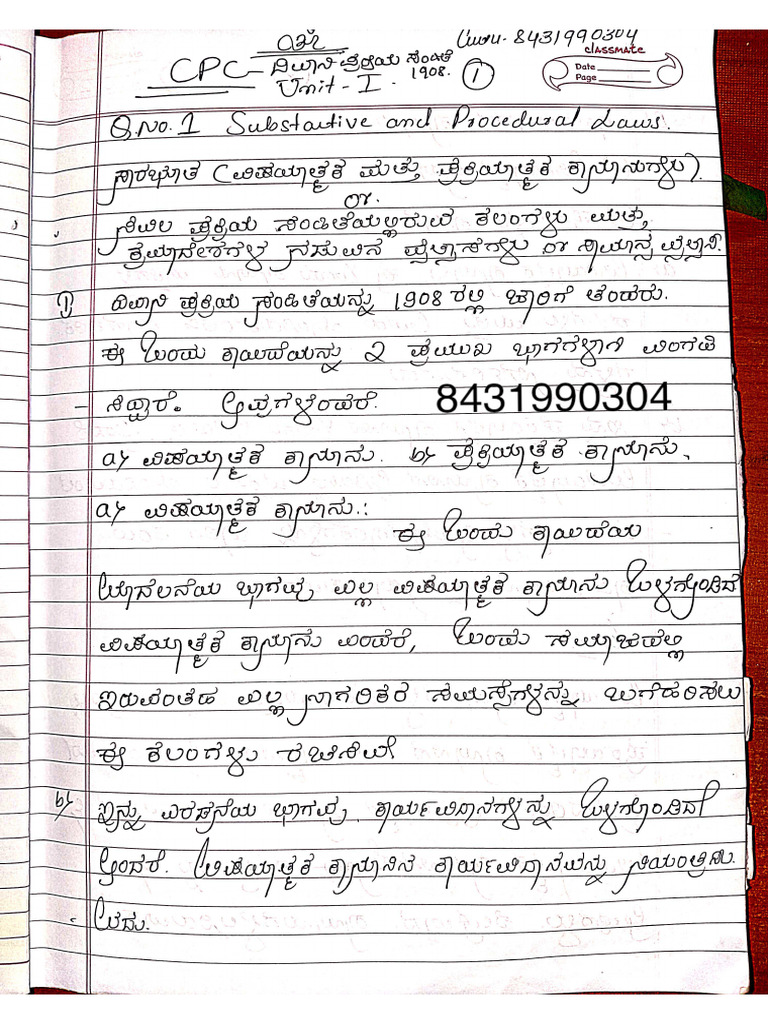 8431990304
classmate
Date
Page
CPC - ದಿವಾನಿ ಪ್ರಕ್ರಿಯ ಸಂಹಿತೆ
1908.
Unit - I.
1
Q.No.1 Substantive and Procedural Laws.
ಸಾರಭೂತ (ವಿಷಯಾತ್ಮಕ ಮತ್ತು ಪ್ರಕ್ರಿಯಾತ್ಮಕ ಕಾನೂನುಗಳು).
or.
ಸಿವಿಲ ಪ್ರಕ್ರಿಯ ಸಂಹಿತೆಯಲ್ಲಿರುವ ಕಲಂಗಳು ಮತ್ತು
ಕ್ರಮಾದೇಶಗಳ ನಡುವಿನ ವ್ಯತ್ಯಾಸಗಳು or
1) ದಿವಾನಿ ಪ್ರಕ್ರಿಯ ಸಂಹಿತೆಯನ್ನು 1908 ರಲ್ಲಿ ಜಾರಿಗೆ ತಂದರು.
ಈ ಒಂದು ಕಾಯಿದೆಯನ್ನು 2 ಪ್ರಮುಖ ಭಾಗಗಳಾಗಿ ವಿಂಗಡಿ
- ಸಿದ್ದಾರೆ. ಅವುಗಳೆಂದರೆ.
8431990304
a) ವಿಷಯಾತ್ಮಕ ಕಾನೂನು. b) ಪ್ರಕ್ರಿಯಾತ್ಮಕ ಕಾನೂನು,
a) ವಿಷಯಾತ್ಮಕ ಕಾನೂನು.:
ಈ ಒಂದು ಕಾಯಿದೆಯ
ಮೊದಲನೆಯ ಭಾಗವು ಎಲ್ಲ ವಿಷಯಾತ್ಮಕ ಕಾನೂನು ಒಳಗೊಂಡಿದೆ
ವಿಷಯಾತ್ಮಕ ಕಾನೂನು ಎಂದರೆ, ಒಂದು ಸಮಾಜದಲ್ಲಿ
ಇರುವಂತಹ ಎಲ್ಲ ನಾಗರಿಕರ ಸಮಸ್ಯೆಗಳನ್ನು ಬಗೆಹರಿಸಲು
ಈ ಕಲಂಗಳು ರಚಿಸಿವೆ
b) ಇನ್ನು ಎರಡನೆಯ ಭಾಗವು ಕಾರ್ಯವಿಧಾನಗಳನ್ನು ಒಳಗೊಂಡಿದೆ
ಅಂದರೆ. ವಿಷಯಾತ್ಮಕ ಕಾನೂನಿನ ಕಾರ್ಯವಿಧಾನವನ್ನು ನಿಯಂತ್ರಿಸು.
- ವದು.